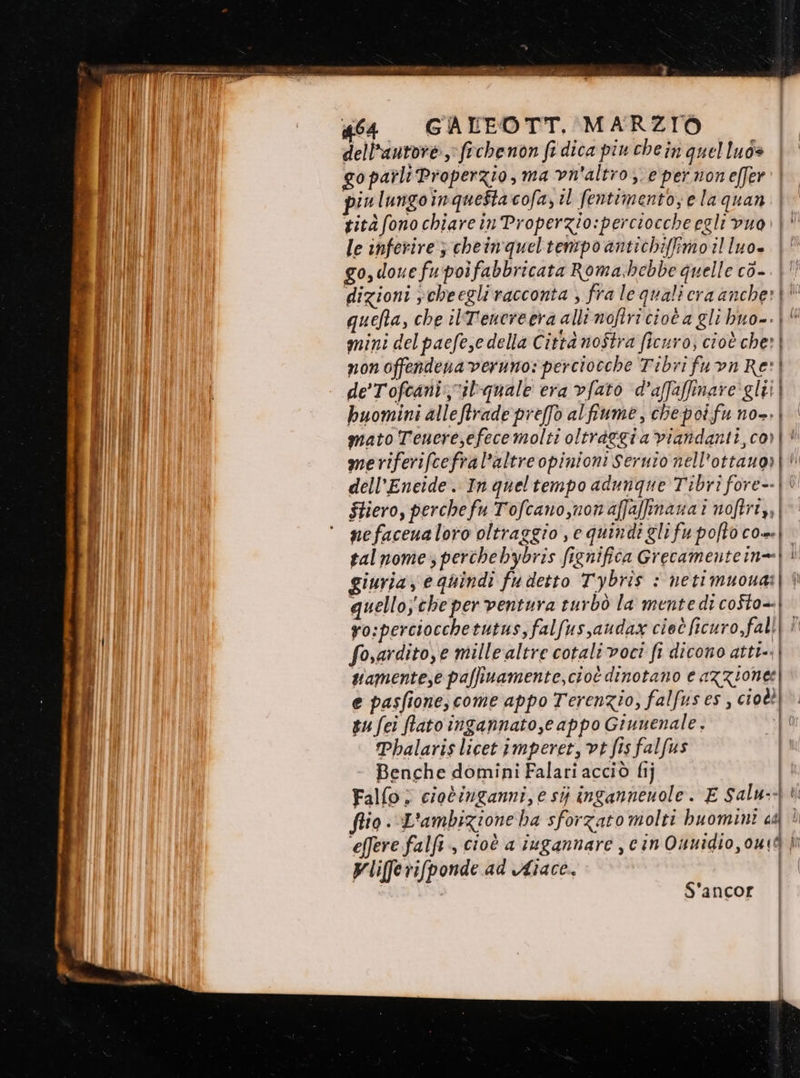 464 GALEOTT. MARZIO
dell'autore, ſichenon ſi dica piu chein quel luo-
go parli Properzio, ma vn'altro; e per non eſſer
piu lungo in queſta coſa, il ſentimento, e la quan
tità ſono chiare in Properzio: perciocche egli vuo
le inferire; che in quel tempo antichiſſimo il luo-
go, doue fu poi fabbricata Roma, hebbe quelle cõ-
dizioni, che egli racconta, fra le quali era anche
queſta, che il Teuere era alli noſtri cioè a gli huo-
mini del paeſe, e della Città noſtra ſicuro, cioè che
non offendeua veruno: perciocche Tibri fu vn Re
de' Toſcani, il quale era vſato d'aſſaſſinare gli
huomini alle ſtrade preſſo al fiume, che poi fu no-
mato Teuere, e fece molti oltraggi a viandanti, co
me riferiſce fra l'altre opinioni Seruio nell'ottauo
dell'Eneide. In quel tempo adunque Tibri fore-
ſtiero, perche fu Toſcano, non aſſaſſinaua i noſtri,
ne faceua loro oltraggio, e quindi gli fu poſto co-
tal nome, perche hybris ſignifica Grecamente in-
giuria, e quindi fu detto Tybris: ne ti muoua
quello, che per ventura turbò la mente di coſto-
ro: perciocche tutus, falſus, audax cioè ſicuro, fal
ſo, ardito, e mille altre cotali voci ſi dicono atti-
uamente, e paſſiuamente, cioè dinotano e azzione
e pasſione, come appo Terenzio, falſus es, cioè
tu ſei ſtato ingannato, e appo Giuuenale.
Phalaris licet imperet, vt ſis falſus
Benche domini Falari acciò ſij
Falſo; cioè inganni, e sij ingannevole. E Salu-
ſtio. L'ambizione ha sforzato molti huomini ad
eſſere falſi, cioè a iugannare, e in Ouuidio, oue
Vliſſe riſponde ad Aiace.
S'ancor